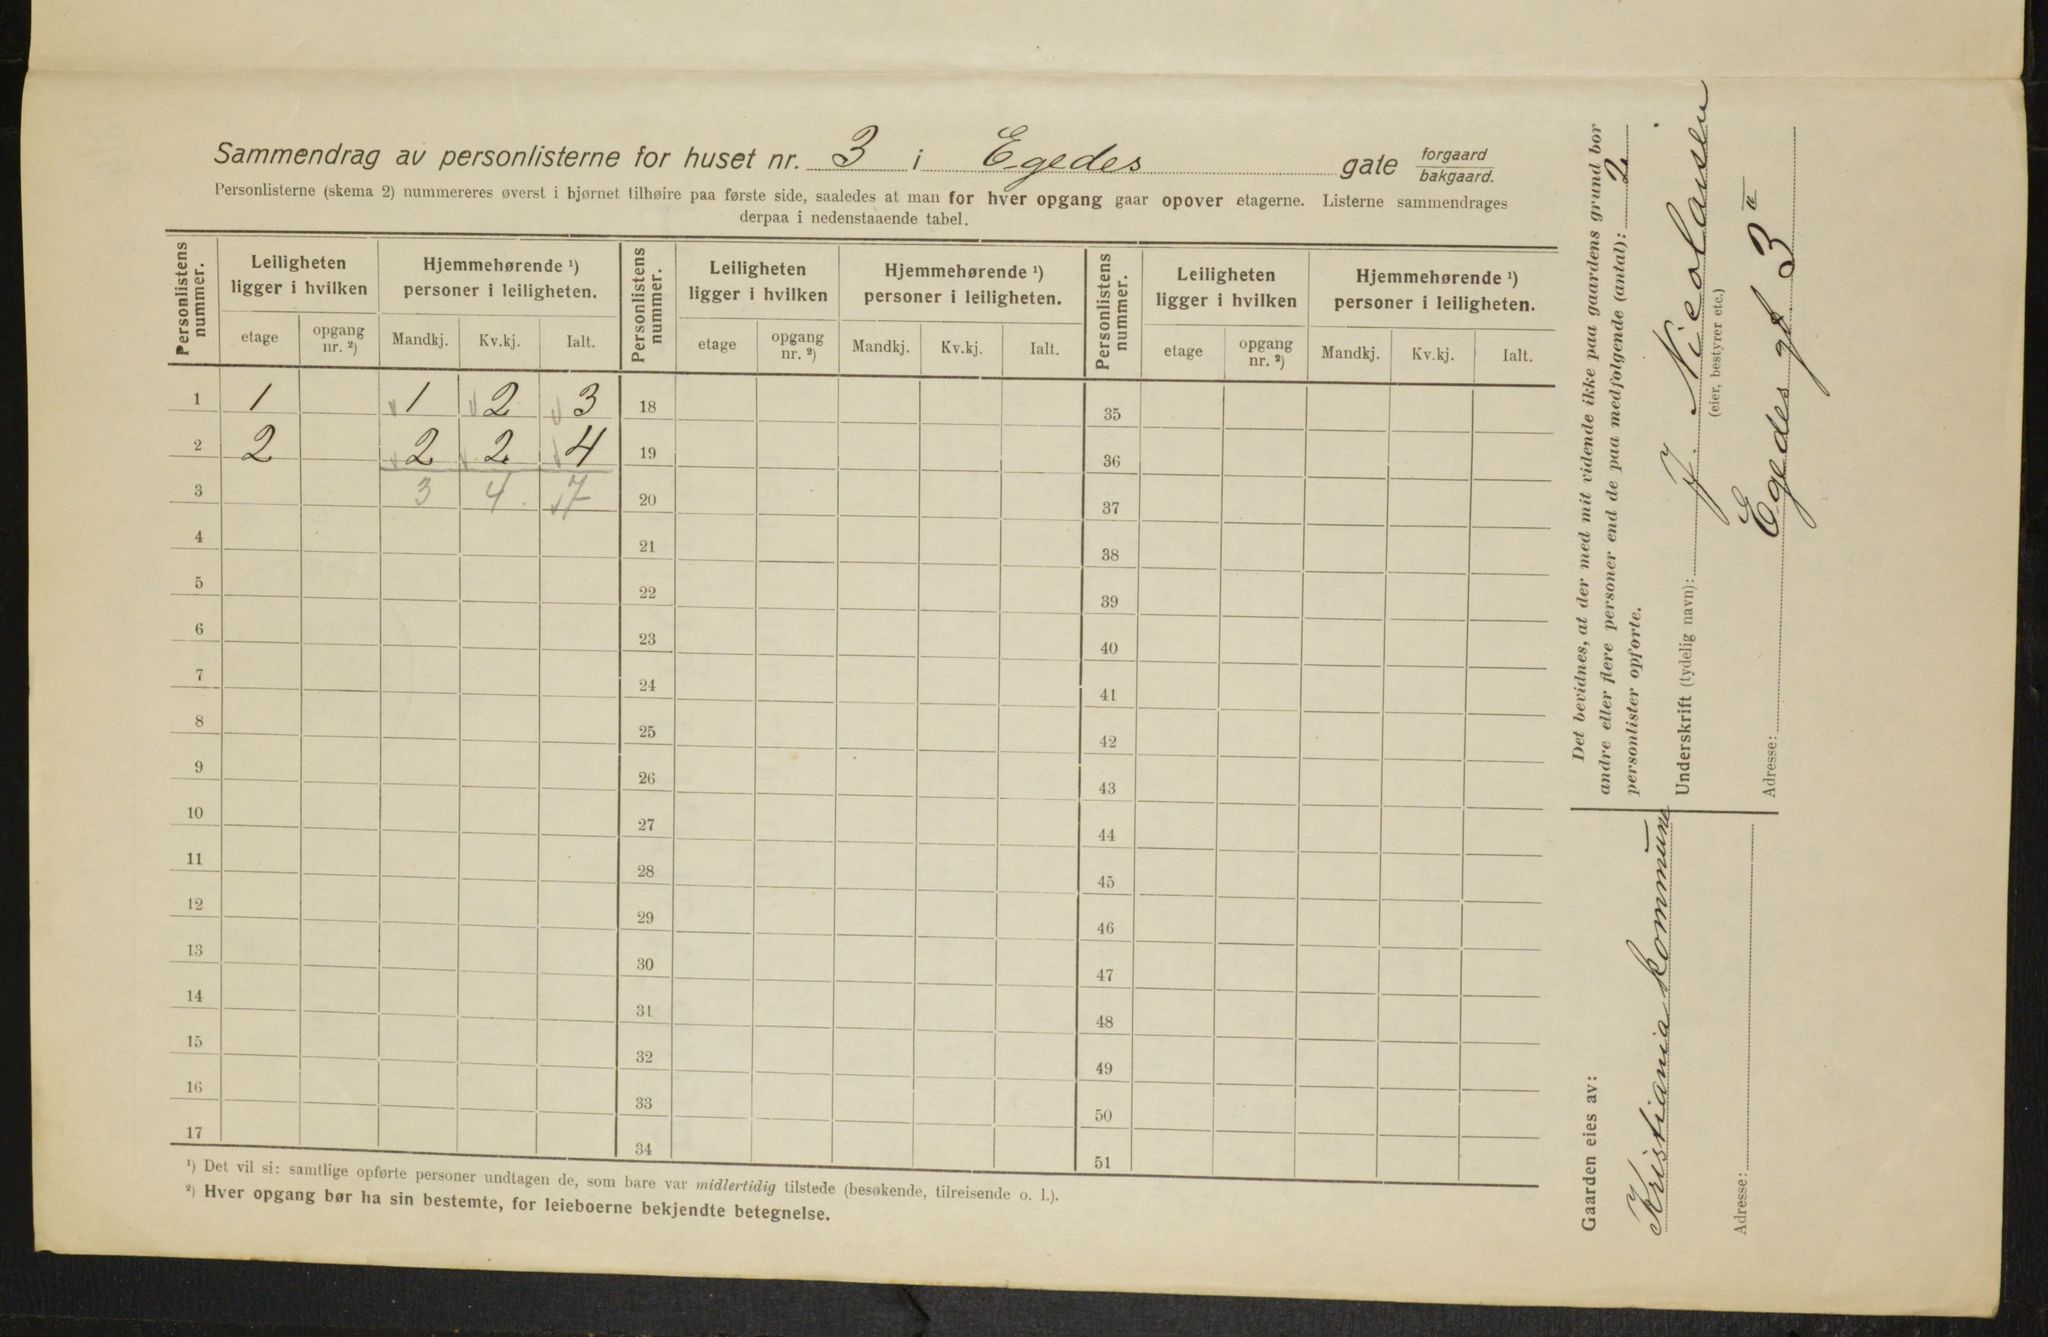 Sammendrag av personlisterne for huset nr. 3 i Egedes gate forgaard bakgaard.
Personlisterne (skema 2) nummereres øverst i hjørnet tilhøire paa første side, saaledes at man for hver opgang gaar opover etagerne. Listerne sammendrages
derpaa i nedenstaaende tabel.
Personlistens nummer. Leiligheten ligger i hvilken Hjemmehørende ¹) personer i leiligheten. Personlistens nummer. Leiligheten ligger i hvilken Hjemmehørende ¹) personer i leiligheten. Personlistens nummer. Leiligheten ligger i hvilken Hjemmehørende ¹) personer i leiligheten.
etage opgang nr. ²) Mandkj. Kv.kj. Ialt. etage opgang nr. ²) Mandkj. Kv.kj. Ialt. etage opgang nr. ²) Mandkj. Kv.kj. Ialt.
1 1 1 2 3 18 35
2 2 2 2 4 19 36
3 3 4 7 20 37
4 21 38
5 22 39
6 23 40
7 24 41
8 25 42
9 26 43
10 27 44
11 28 45
12 29 46
13 30 47
14 31 48
15 32 49
16 33 50
17 34 51
¹) Det vil si: samtlige opførte personer undtagen de, som bare var midlertidig tilstede (besøkende, tilreisende o. l.).
²) Hver opgang bør ha sin bestemte, for leieboerne bekjendte betegnelse.
Det bevidnes, at der med mit vidende ikke paa gaardens grund bor
andre eller flere personer end de paa medfølgende (antal): 2
personlister opførte.
Underskrift (tydelig navn): J. Nicolaisen
(eier, bestyrer etc.)
Adresse: Egedes gt 3 II
Gaarden eies av:
Kristiania kommune
Adresse: